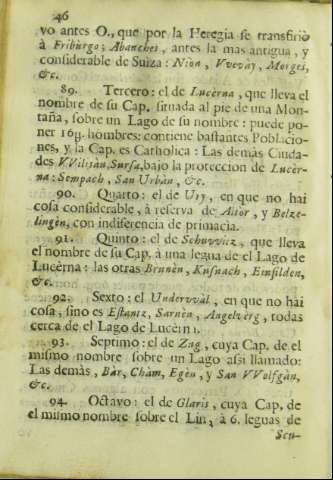 46
vo antes O., que por la Heregia se transfirió
à Friburgo; Abanches, antes la mas antigua, y
considerable de Suiza: Nion, Vvevay, Morges,
&c.
89. Tercero: el de Lucérna, que lleva el
nombre de su Cap. situada al pie de una Mon-
taña, sobre un Lago de su nombre: puede po-
ner 16y. hombres: contiene bastantes Poblacio-
nes, y la Cap. es Catholica: Las demàs Ciuda-
des VVilisàn, Sursa, bajo la proteccion de Lucér-
na: Sempach, San Urbàn, &c.
90. Quarto: el de Ury, en que no hai
cosa considerable, à reserva de Altor, y Belze-
lingen, con indiferencia de primacia.
91. Quinto: el de Schuvvitz, que lleva
el nombre de su Cap. à una legua de el Lago de
Lucèrna: las otras Brunèn, Kusnach, Einsilden,
&c.
92. Sexto: el de Undervvàl, en que no hai
cosa, sino es Estantz, Sarnèn, Angelvèrg, todas
cerca de el Lago de Lucèrn
93. Septimo: el de Zug, cuya Cap. de el
mismo nombre sobre un Lago assi llamado:
Las demàs, Bàr, Chàm, Egen, y San VVolfgàn,
&c.
94. Octavo: el de Glaris, cuya Cap. de
el mismo nombre sobre el Lin, à 6. leguas de
Scu-